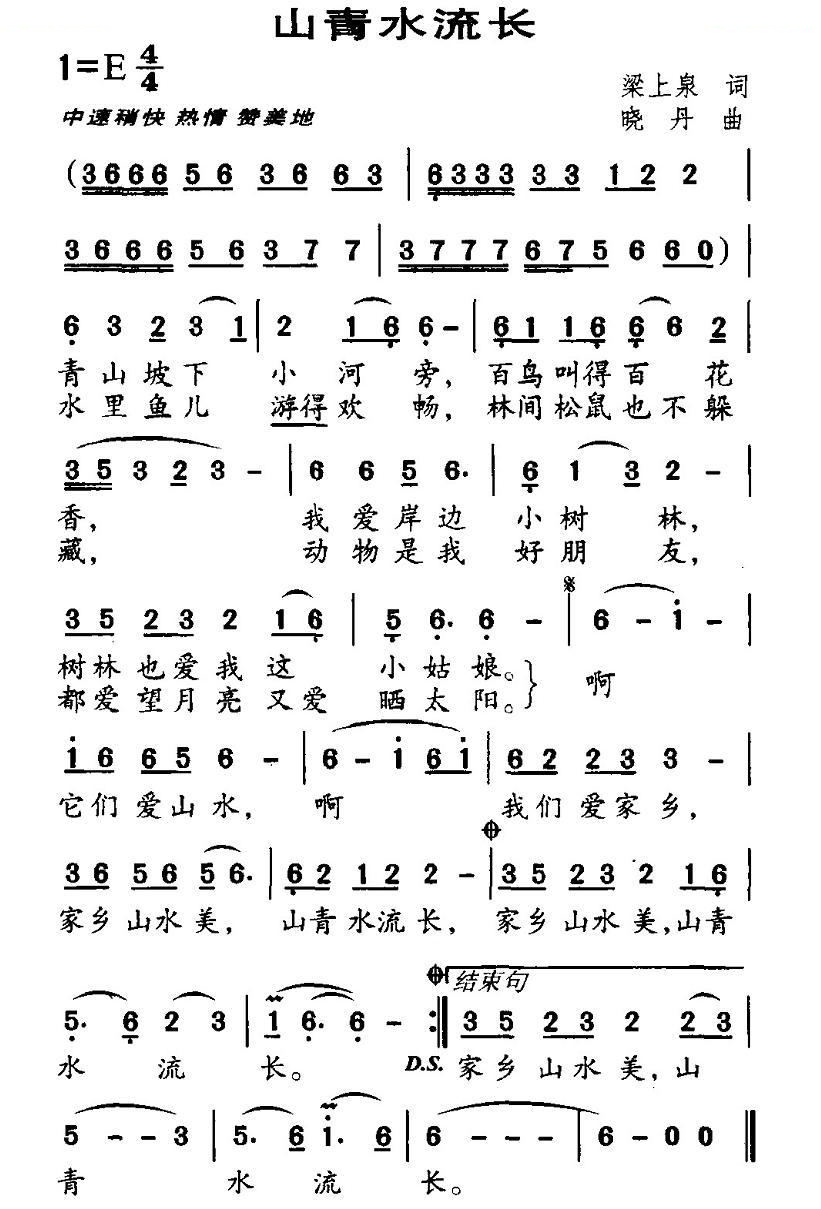 山青水流长
1=E 4/4
梁上泉 词
中速稍快 热情 赞美地
晓 丹 曲
(3666 56 36 63 | 6333 33 12 2 |
3666 56 37 7 | 3777 67 5 6 60) |
6 3 2 3 1 | 2 1 6 6 - | 61 16 6 6 2
青山坡下 小河旁, 百鸟叫得百花
水里鱼儿 游得欢畅, 林间松鼠也不躲
35 3 2 3 - | 6 6 5 6· | 6 1 3 2 - |
香, 我爱岸边 小树林,
藏, 动物是我 好朋友,
35 23 2 16 | 5 6· 6 - | 6 - 1 - |
树林也爱我这 小姑娘。 啊
都爱望月亮又爱 晒太阳。
16 65 6 - | 6 - 1 61 | 62 23 3 - |
它们爱山水, 啊 我们爱家乡,
36 56 56· | 62 12 2 - | 35 23 2 16 |
家乡山水美, 山青水流长, 家乡山水美,山青
结束句
5· 6 2 3 | 1 6· 6 - :‖ 35 23 2 23 |
水流长。 D.S. 家乡山水美,山
5 - - 3 | 5· 6 1· 6 | 6 - - - | 6 - 0 0 ‖
青 水流长。